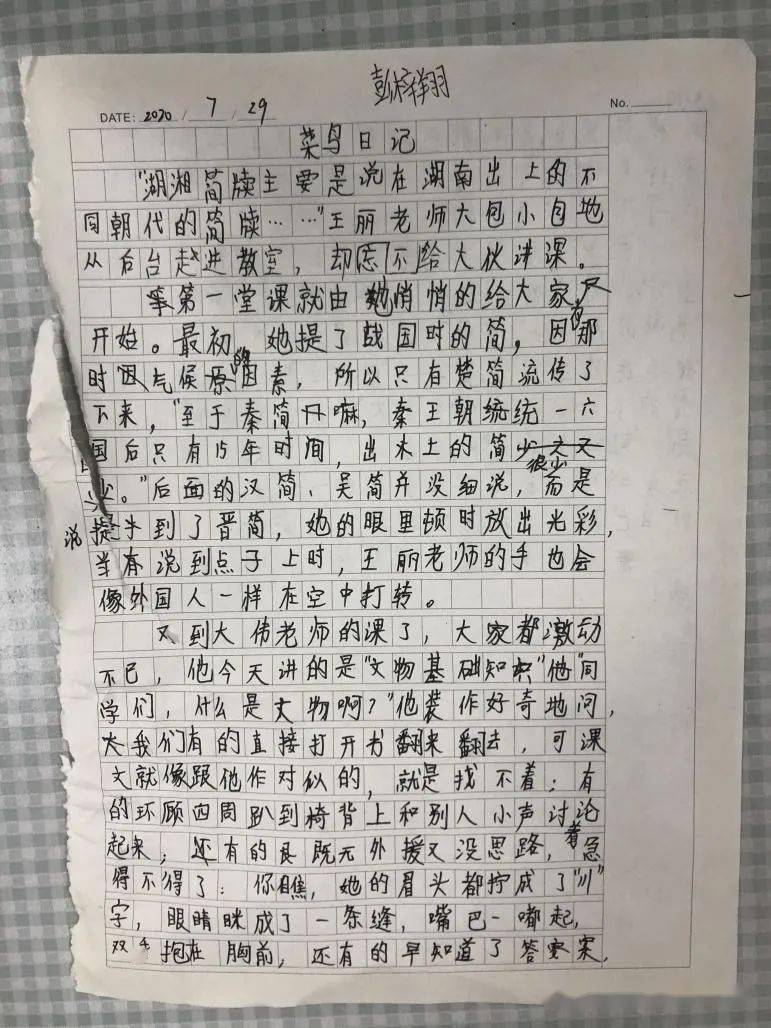 彭梓翔
DATE: 2020 / 7 / 29 No.
菜鸟日记
"湖湘简牍主要是说在湖南出上的不
同朝代的简牍……"王丽老师大包小包地
从后台赶进教室，却忘不给大伙讲课。
第一堂课就由她悄悄的给大家
开始。最初，她提了战国时的简，因有那
时因气候的因素，所以只有楚简流传了
下来，"至于秦简嘛，秦王朝统统一六
国后只有15年时间，出木上的简很少
。"后面的汉简、吴简并没细说，而是
说到了晋简，她的眼里顿时放出光彩，
当有说到点子上时，王丽老师的手也会
像外国人一样在空中打转。
又到大伟老师的课了，大家都激动
不已，他今天讲的是"文物基础知识"他"同
学们，什么是文物啊？"他装作好奇地问，
我们有的直接打开书翻来翻去，可课
文就像跟他作对似的，就是找不着；有
的环顾四周趴到椅背上和别人小声讨论
起来；还有的既无外援又没思路，着急
得不得了：你瞧，她的眉头都拧成了"川"
字，眼睛眯成了一条缝，嘴巴一嘟起，
双手抱在胸前，还有的早知道了答案，